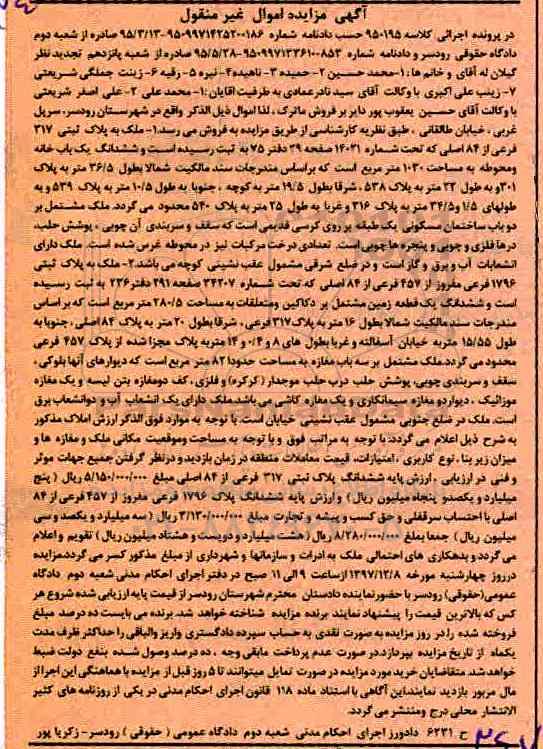 آگهی مزایده اموال غیر منقول
در پرونده اجرائی کلاسه ۹۵۰۱۹۵ حسب دادنامه شماره ۹۵۰۹۹۷۱۴۲۵۲۰۰۱۸۶-۹۵/۳/۱۳ صادره از شعبه دوم
دادگاه حقوقی رودسر و دادنامه شماره ۹۵۰۹۹۷۱۳۳۶۱۰۰۸۵۳-۹۵/۵/۲۸ صادره از شعبه پانزدهم تجدید نظر
گیلان له آقای و خانم ها: ۱-محمد حسین ۲- حمیده ۳- ناهیده ۴- نیره ۵- رقیه ۶- زینت جملگی شریعتی
۷- زینب علی اکبری با وکالت آقای سید نادر عمادی به طرفیت اقایان: ۱- محمد علی ۲- علی اصغر شریعتی
با وکالت آقای حسین یعقوب پور دایر بر فروش ماترک، لذا اموال ذیل الذکر واقع در شهرستان رودسر، سرپل
غربی، خیابان طالقانی، طبق نظریه کارشناسی از طریق مزایده به فروش می رسد. ۱- ملک به پلاک ثبتی ۳۱۷
فرعی از ۸۴ اصلی که تحت شماره ۱۴۰۲۱ صفحه ۲۹ دفتر ۷۵ به ثبت رسیده است و ششدانگ یک باب خانه
ومحوطه به مساحت ۱۰۳۰ متر مربع است که براساس مندرجات سند مالکیت شمالا بطول ۳۶/۵ متر به پلاک
۳۰۱و به طول ۲۲ متر به پلاک ۵۳۸، شرقا بطول ۱۹/۵ متر به کوچه، جنوبا به طول ۱۰/۵ متر به پلاک ۵۳۹ و به
طولهای ۷/۵ و ۳۴/۵ متر به پلاک ۳۱۶ و غربا به طول ۲۵ متر به پلاک ۵۴۰ محدود می گردد. ملک مشتمل بر
دو باب ساختمان مسکونی یک طبقه بر روی کرسی قدیمی است که سقف و سربندی آن چوبی، پوشش حلب،
درها فلزی و چوبی و پنجره ها چوبی است. تعدادی درخت مرکبات نیز در محوطه غرس شده است. ملک دارای
انشعابات آب و برق و گاز است و در ضلع شرقی مشمول عقب نشینی کوچه می باشد. ۲- ملک به پلاک ثبتی
۱۷۹۶ فرعی مفروز از ۴۵۷ فرعی از ۸۴ اصلی که تحت شماره ۳۴۲۰۷ صفحه ۲۹۱ دفتر ۲۲۶ به ثبت رسیده
است و ششدانگ یک قطعه زمین مشتمل بر دکاکین ومتعلقات به مساحت ۲۸۰/۵ متر مربع است که بر اساس
مندرجات سند مالکیت شمالا بطول ۱۶ متر به پلاک ۳۱۷ فرعی، شرقا بطول ۲۰ متر به پلاک ۸۴ اصلی، جنوبا به
طول ۱۵/۵۵ متربه خیابان آسفالته و غربا بطول های ۸ و ۰/۴ و ۱۴ متربه پلاک مجزا شده از پلاک ۴۵۷ فرعی
محدود می گردد. ملک مشتمل بر سه باب مغازه به مساحت حدودا ۸۲ متر مربع است که دیوارهای آنها بلوکی،
سقف و سربندی چوبی، پوشش حلب درب حلب موجدار (کرکره) و فلزی، کف دومغازه بتن لیسه و یک مغازه
موزائیک، دیوار دو مغازه سیمانکاری و یک مغازه کاشی می باشد. ملک دارای یک انشعاب آب و دوانشعاب برق
است. ملک در ضلع جنوبی مشمول عقب نشینی خیابان است. با توجه به موارد فوق الذکر ارزش املاک مذکور
به شرح ذیل اعلام می گردد: با توجه به مراتب فوق و با توجه به مساحت وموقعیت مکانی ملک و مغازه ها و
میزان زیر بنا، نوع کاربری، امتیازات، قیمت معاملات منطقه در زمان بازدید و درنظر گرفتن جمیع جهات موثر
و فنی در ارزیابی، ارزش پایه ششدانگ پلاک ثبتی ۳۱۷ فرعی از ۸۴ اصلی مبلغ ۵/۱۵۰/۰۰۰/۰۰۰ ریال (پنج
میلیارد و یکصدو پنجاه میلیون ریال) و ارزش پایه ششدانگ پلاک ۱۷۹۶ فرعی مفروز از ۴۵۷ فرعی از ۸۴
اصلی با احتساب سرقفلی و حق کسب و پیشه و تجارت مبلغ ۳/۱۳۰/۰۰۰/۰۰۰ ریال (سه میلیارد و یکصد و سی
میلیون ریال) جمعا بمبلغ ۸/۲۸۰/۰۰۰/۰۰۰ ریال (هشت میلیارد و دویست و هشتاد میلیون ریال) تقویم و اعلام
می گردد و بدهکاری های احتمالی ملک به ادرات و سازمانها و شهرداری از مبلغ مذکور کسر می گردد. مزایده
درروز چهارشنبه مورخه ۱۳۹۷/۱۲/۸ ازساعت ۹ الی ۱۱ صبح در دفتر اجرای احکام مدنی شعبه دوم دادگاه
عمومی(حقوقی) رودسر با حضور نماینده دادستان محترم شهرستان رودسر از قیمت پایه ارزیابی شده شروع هر
کس که بالاترین قیمت را پیشنهاد نمایند برنده مزایده شناخته خواهد شد. برنده می بایست ده درصد مبلغ
فروخته شده را در روز مزایده به صورت نقدی به حساب سپرده دادگستری واریز والباقی را حداکثر ظرف مدت
یکماه از تاریخ مزایده بپردازد. در صورت عدم پرداخت مابقی وجه، ده درصد وصول شده بنفع دولت ضبط
خواهد شد. متقاضیان خرید مورد مزایده در صورت تمایل میتوانند تا ۵ روز قبل از مزایده با هماهنگی این اجرا از
مال مزبور بازدید نمایند. این آگاهی با استناد ماده ۱۱۸ قانون اجرای احکام مدنی در یکی از روزنامه های کثیر
الانتشار محلی درج و منتشر می گردد.
ح ۶۲۳۱ دادورز اجرای احکام مدنی شعبه دوم دادگاه عمومی (حقوقی) رودسر- زکریا پور